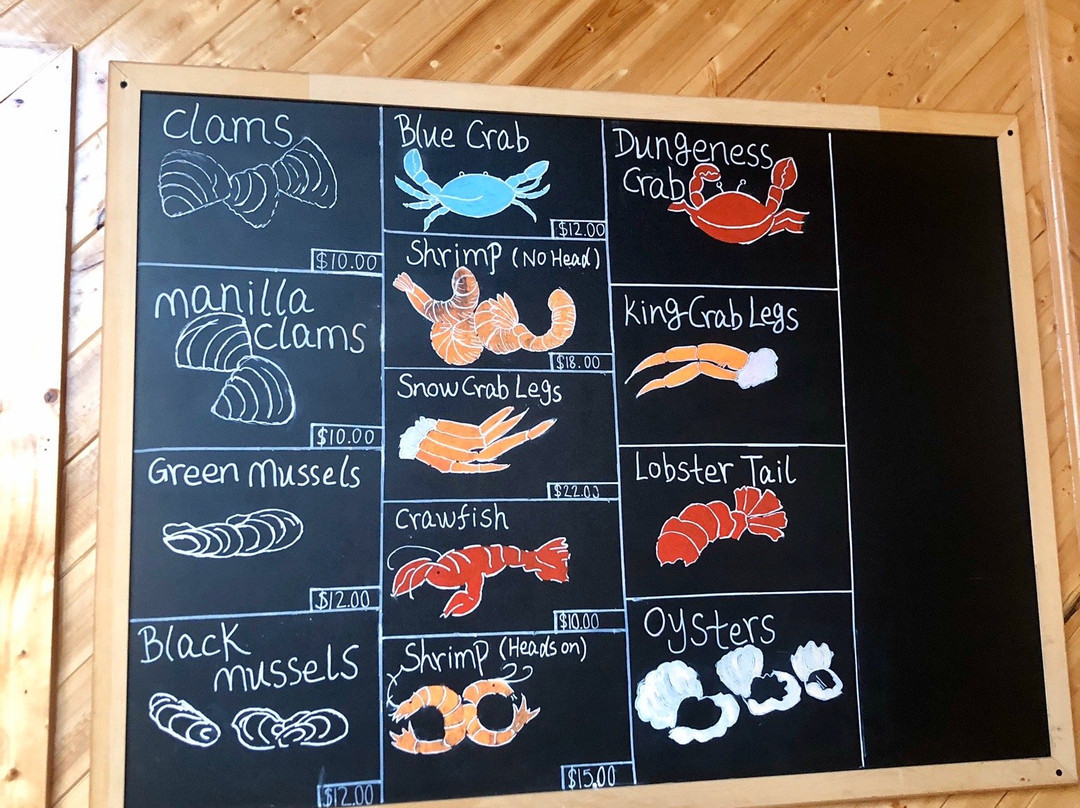 Clams
$10.00
manilla
clams
$10.00
Green Mussels
$12.00
Black
mussels
$12.00
Blue Crab
$12.00
Shrimp (No Head)
$18.00
Snow Crab Legs
$22.00
Crawfish
$10.00
Shrimp (Heads on)
$15.00
Dungeness
Crab
king Crab Legs
Lobster Tail
Oysters